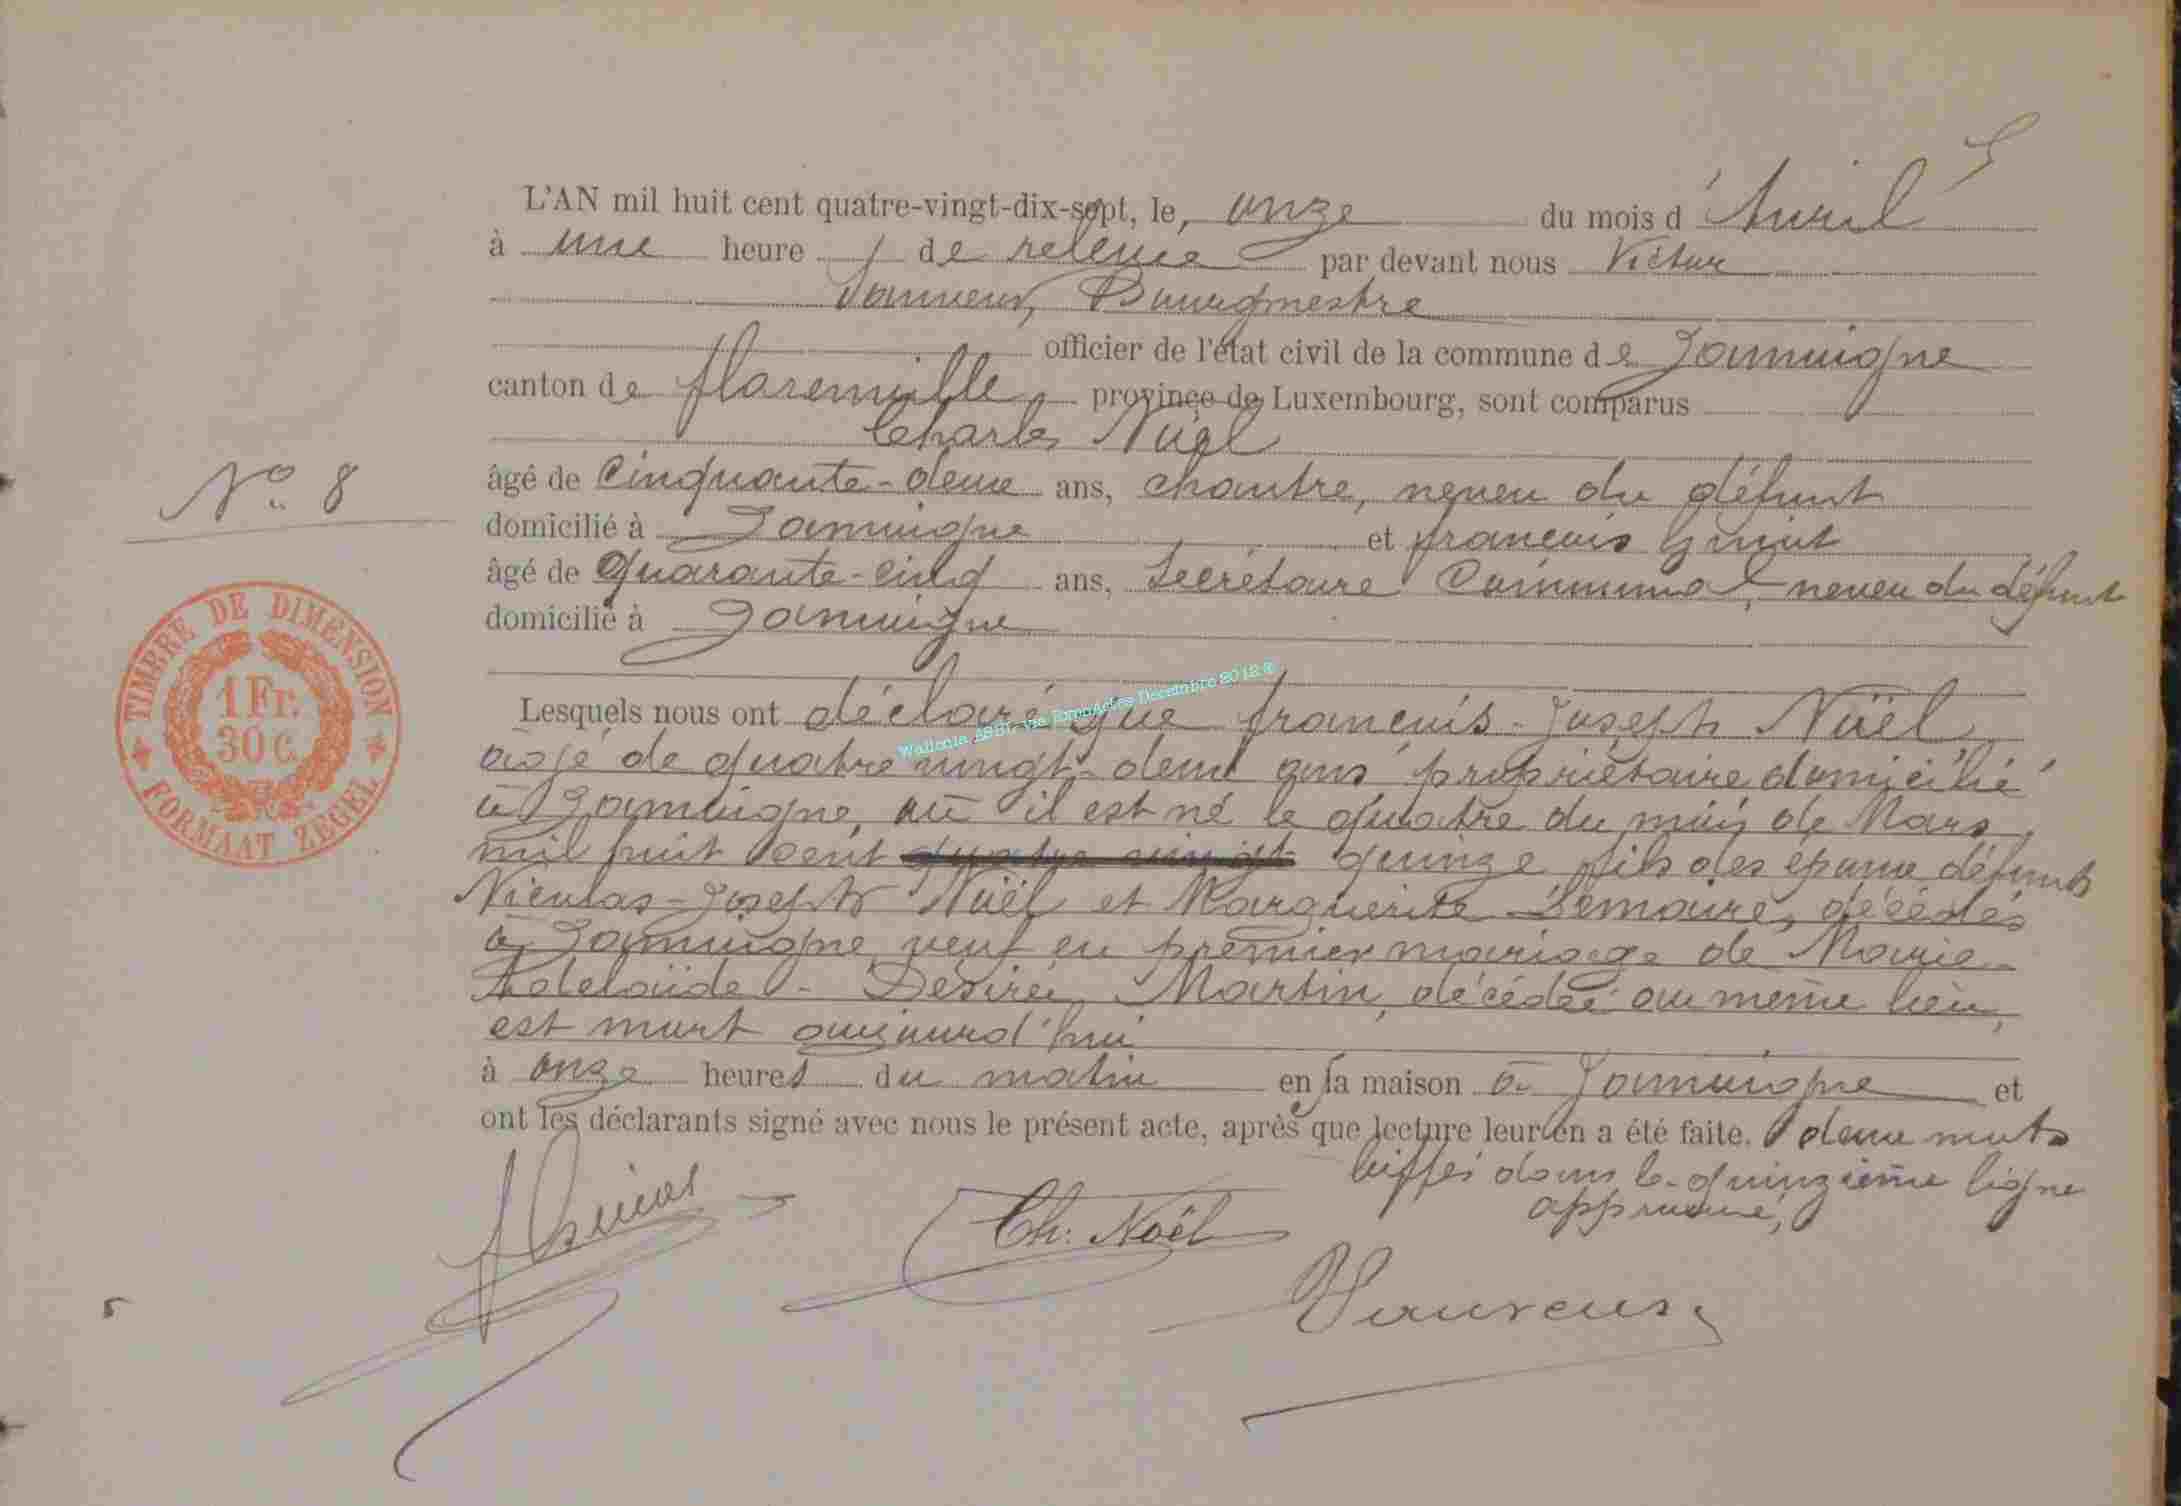 L'AN mil huit cent quatre-vingt-dix-sept, le, onze du mois d'Avril
à une heure de relevée par devant nous Victor
Bourgmestre
officier de l'état civil de la commune de Jamoigne
canton de florenville, province de Luxembourg, sont comparus
Charles Noël
N° 8
âgé de Cinquante-deux ans, chantre, neveu du défunt
domicilié à Jamoigne et françois
âgé de Quarante-cinq ans, Secrétaire Communal, neveu du défunt
domicilié à Jamoigne
TIMBRE DE DIMENSION
1 Fr.
30 C.
FORMAAT ZEGEL
Wallonia ASBL via Décembre 2012
Lesquels nous ont déclaré que françois-Joseph Noël
âgé de quatre vingt-deux ans propriétaire domicilié
à Jamoigne, où il est né le quatre du mois de Mars
mil huit cent quatre vingt quinze fils des époux défunts
Nicolas-Joseph Noël et Marguerite Lemaire, décédés
à Jamoigne, veuf en premier mariage de Marie-
Adelaïde-Désirée Martin, décédée au même lieu,
est mort aujourd'hui
à onze heures du matin en sa maison à Jamoigne et
ont les déclarants signé avec nous le présent acte, après que lecture leur en a été faite. deux mots
biffés dans la quinzième ligne
approuvé,
Ch: Noël